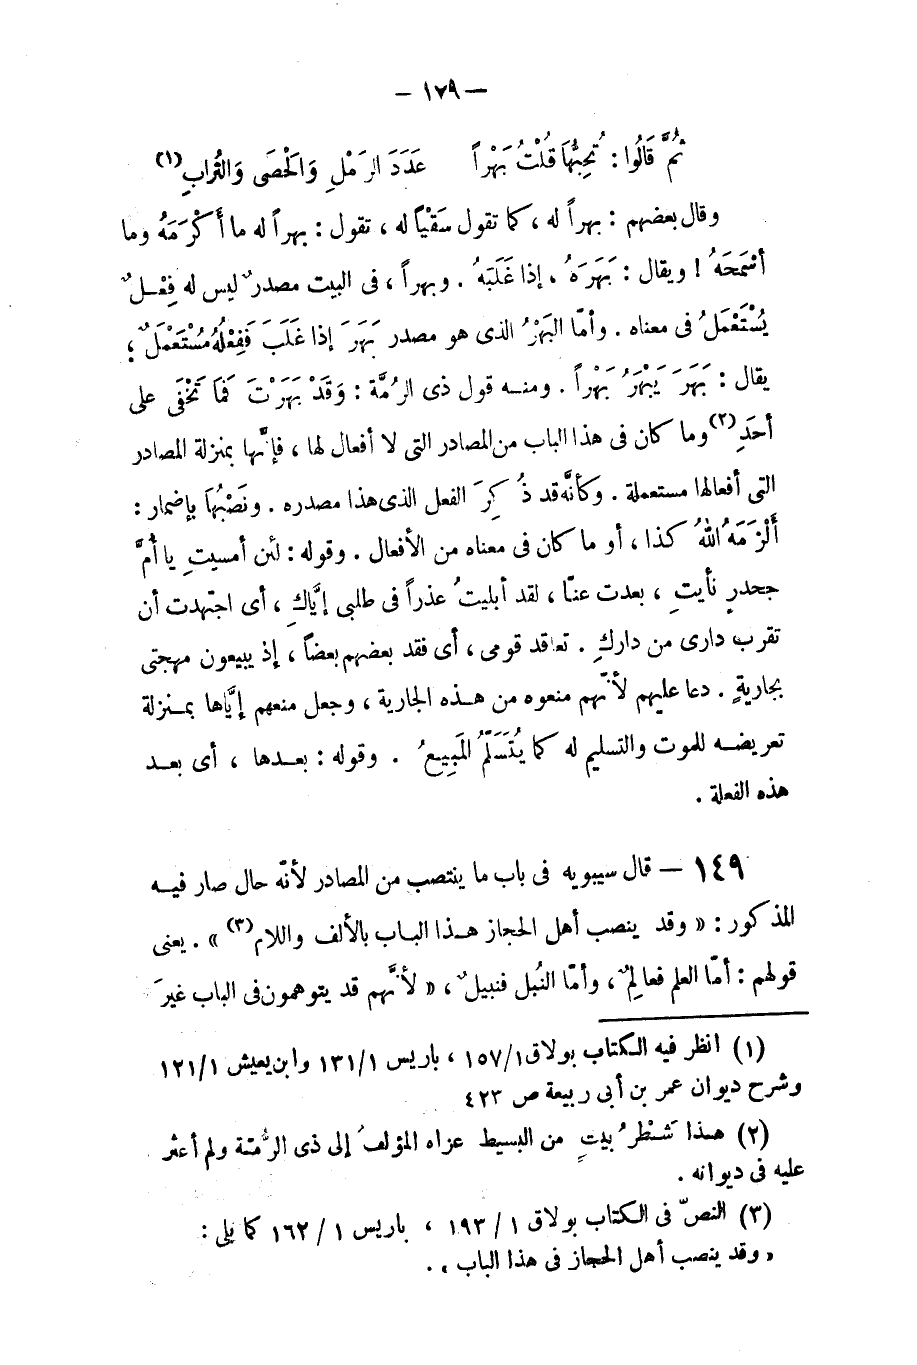 — ١٧٩ —
ثُمَّ قَالُوا : تُحِبُّهَا قُلْتُ بَهْراً عَدَدَ الرَمْلِ وَالْحَصَى وَالتُّرابِ (١)
وقال بعضهم : بهراً له ، كما تقول سَقْيًا له ، تقول : بهراً له ما أَكْرَمَهُ وما
أَسْمَحَهُ ! ويقال : بَهَرَهُ . إذا غَلَبَهُ . وبهراً ، فى البيت مصدرٌ ليس له فِعْـلٌ
يُسْتَعْمَلُ فى معناه . وأمّا البَهْرُ الذى هو مصدر بَهَرَ إذا غَلَبَ فَفِعْلُهُ مُسْتَعْمَلٌ ؛
يقال : بَهَرَ يَبْهَرُ بَهْراً . ومنـه قول ذى الرُمَّة : وَقَدْ بَهَرْتَ فَمَا تَخْفَى على
أحَدِ (٢) وما كان فى هذا الباب من المصادر التى لا أفعال لها ، فإنّها بمنزلة المصادر
التى أفعالها مستعملة . وكأنَّه قد ذُكِرَ الفعل الذى هذا مصدره . ونَصْبُهَا بإضمار :
أَلْزَمَهُ اللهُ كذا ، أو ما كان فى معناه من الأفعال . وقوله : لئن أمسيتِ يا أُمَّ
جحدرٍ نأيتِ ، بعدت عنّا ، لقد أبليتُ عذراً فى طلبى إيَّاكِ ، أى اجتهدت أن
تقرب دارى من داركِ . تعاقد قومى ، أى فقد بعضهم بعضاً ، إذ يبيعون مهجتى
بجاريةٍ . دعا عليهم لأنّهم منعوه من هـذه الجارية ، وجعل منعهم إيَّاها بمـنزلة
تعريضـه للموت والتسليم له كما يُتَسَلَّمُ المَبِيعُ . وقوله : بعـدها ، أى بعـد
هذه الفعلة .
١٤٩ — قال سيبويه فى باب ما ينتصب من المصادر لأنّه حال صار فيـه
المذكور : « وقد ينصب أهل الحجاز هـذا البـاب بالألف واللام (٣) » . يعنى
قولهم : أمّا العلم فعالِمٌ ، وأمّا النُبل فنبيلٌ ، « لأنَّهم قد يتوهمون فى الباب غيرَ
(١) انظر فيه الكتاب بولاق ١/١٥٧ ، باريس ١/١٣١ وابن يعيش ١/١٢١
وشرح ديوان عمر بن أبى ربيعة ص ٤٢٣
(٢) هـذا شَـطْرُ بيتٍ من البسيط عزاه المؤلفُ إلى ذى الرُّمّة ولم أعثر
عليه فى ديوانه .
(٣) النصّ فى الكتاب بولاق ١ / ١٩٣ ، باريس ١ / ١٦٢ كما يلى :
« وقد ينصب أهل الحجاز فى هذا الباب » .